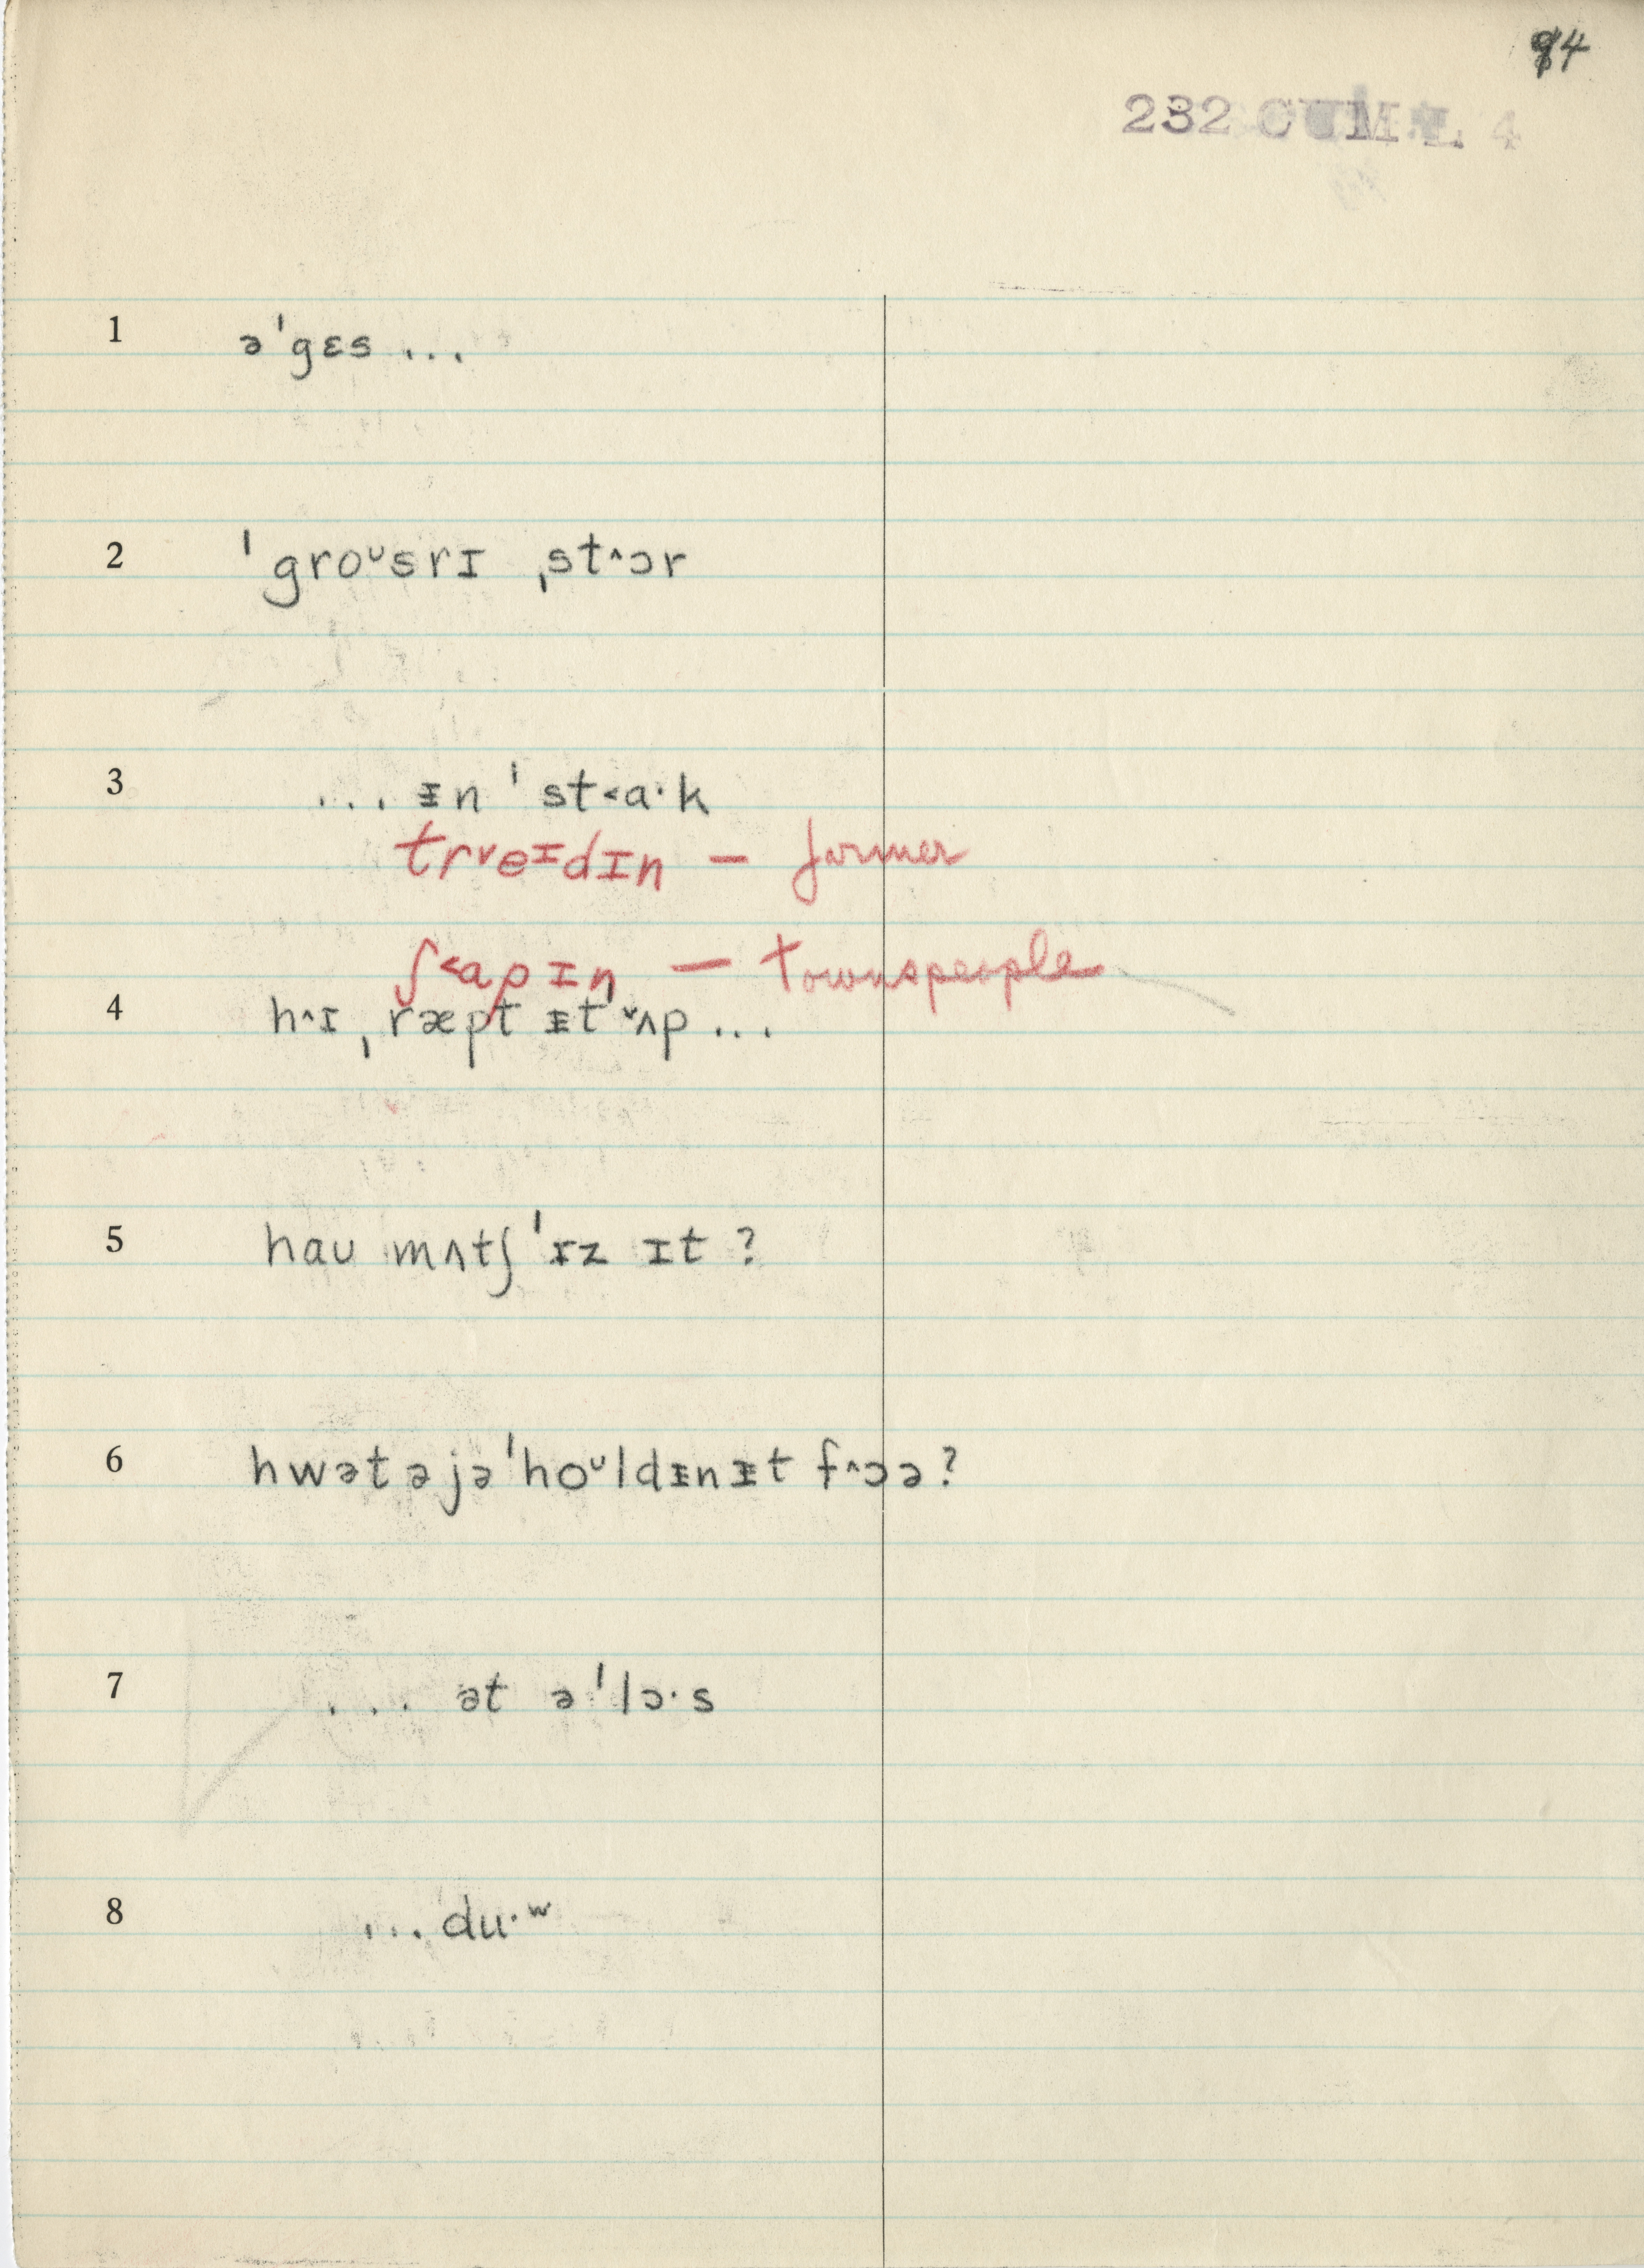 94
232 CUM L. 4
1 ə'gɛs ...
2 'groᶷsrɪ ˌst^ɔr
3 ... ᵻn 'st<a·k
trᵛeᶦdɪn — farmer
ʃ<apɪn — townspeople
4 h^ɪ ˌræpt ᵻt ᵛʌp ...
5 haʊ mʌtʃ 'ɪz ɪt ?
6 hwət əjə 'hoᶷldᵻnᵻt f^ɔə ?
7 ... ət ə'lɔ·s
8 ... du·ʷ